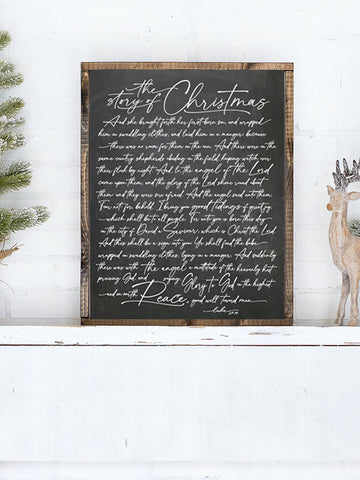 the
story of Christmas
And she brought forth her first born son, and wrapped
him in swaddling clothes, and laid him in a manger because
there was no room for them in the inn. And there were in the
same country shepherds abiding in the field, keeping watch over
their flock by night. And lo the angel of the Lord
came upon them, and the glory of the Lord shone round about
them and they were sore afraid. And the angel said unto them
Fear not for behold, I bring you good tidings of great joy
which shall be to all people. For unto you is born this day
in the city of David a Saviour, which is Christ the Lord.
And this shall be a sign unto you Ye shall find the babe
wrapped in swaddling clothes, lying in a manger. And suddenly
there was with the angel a multitude of the heavenly host
praising God, and saying Glory to God in the highest
and on earth Peace, good will toward men.
Luke